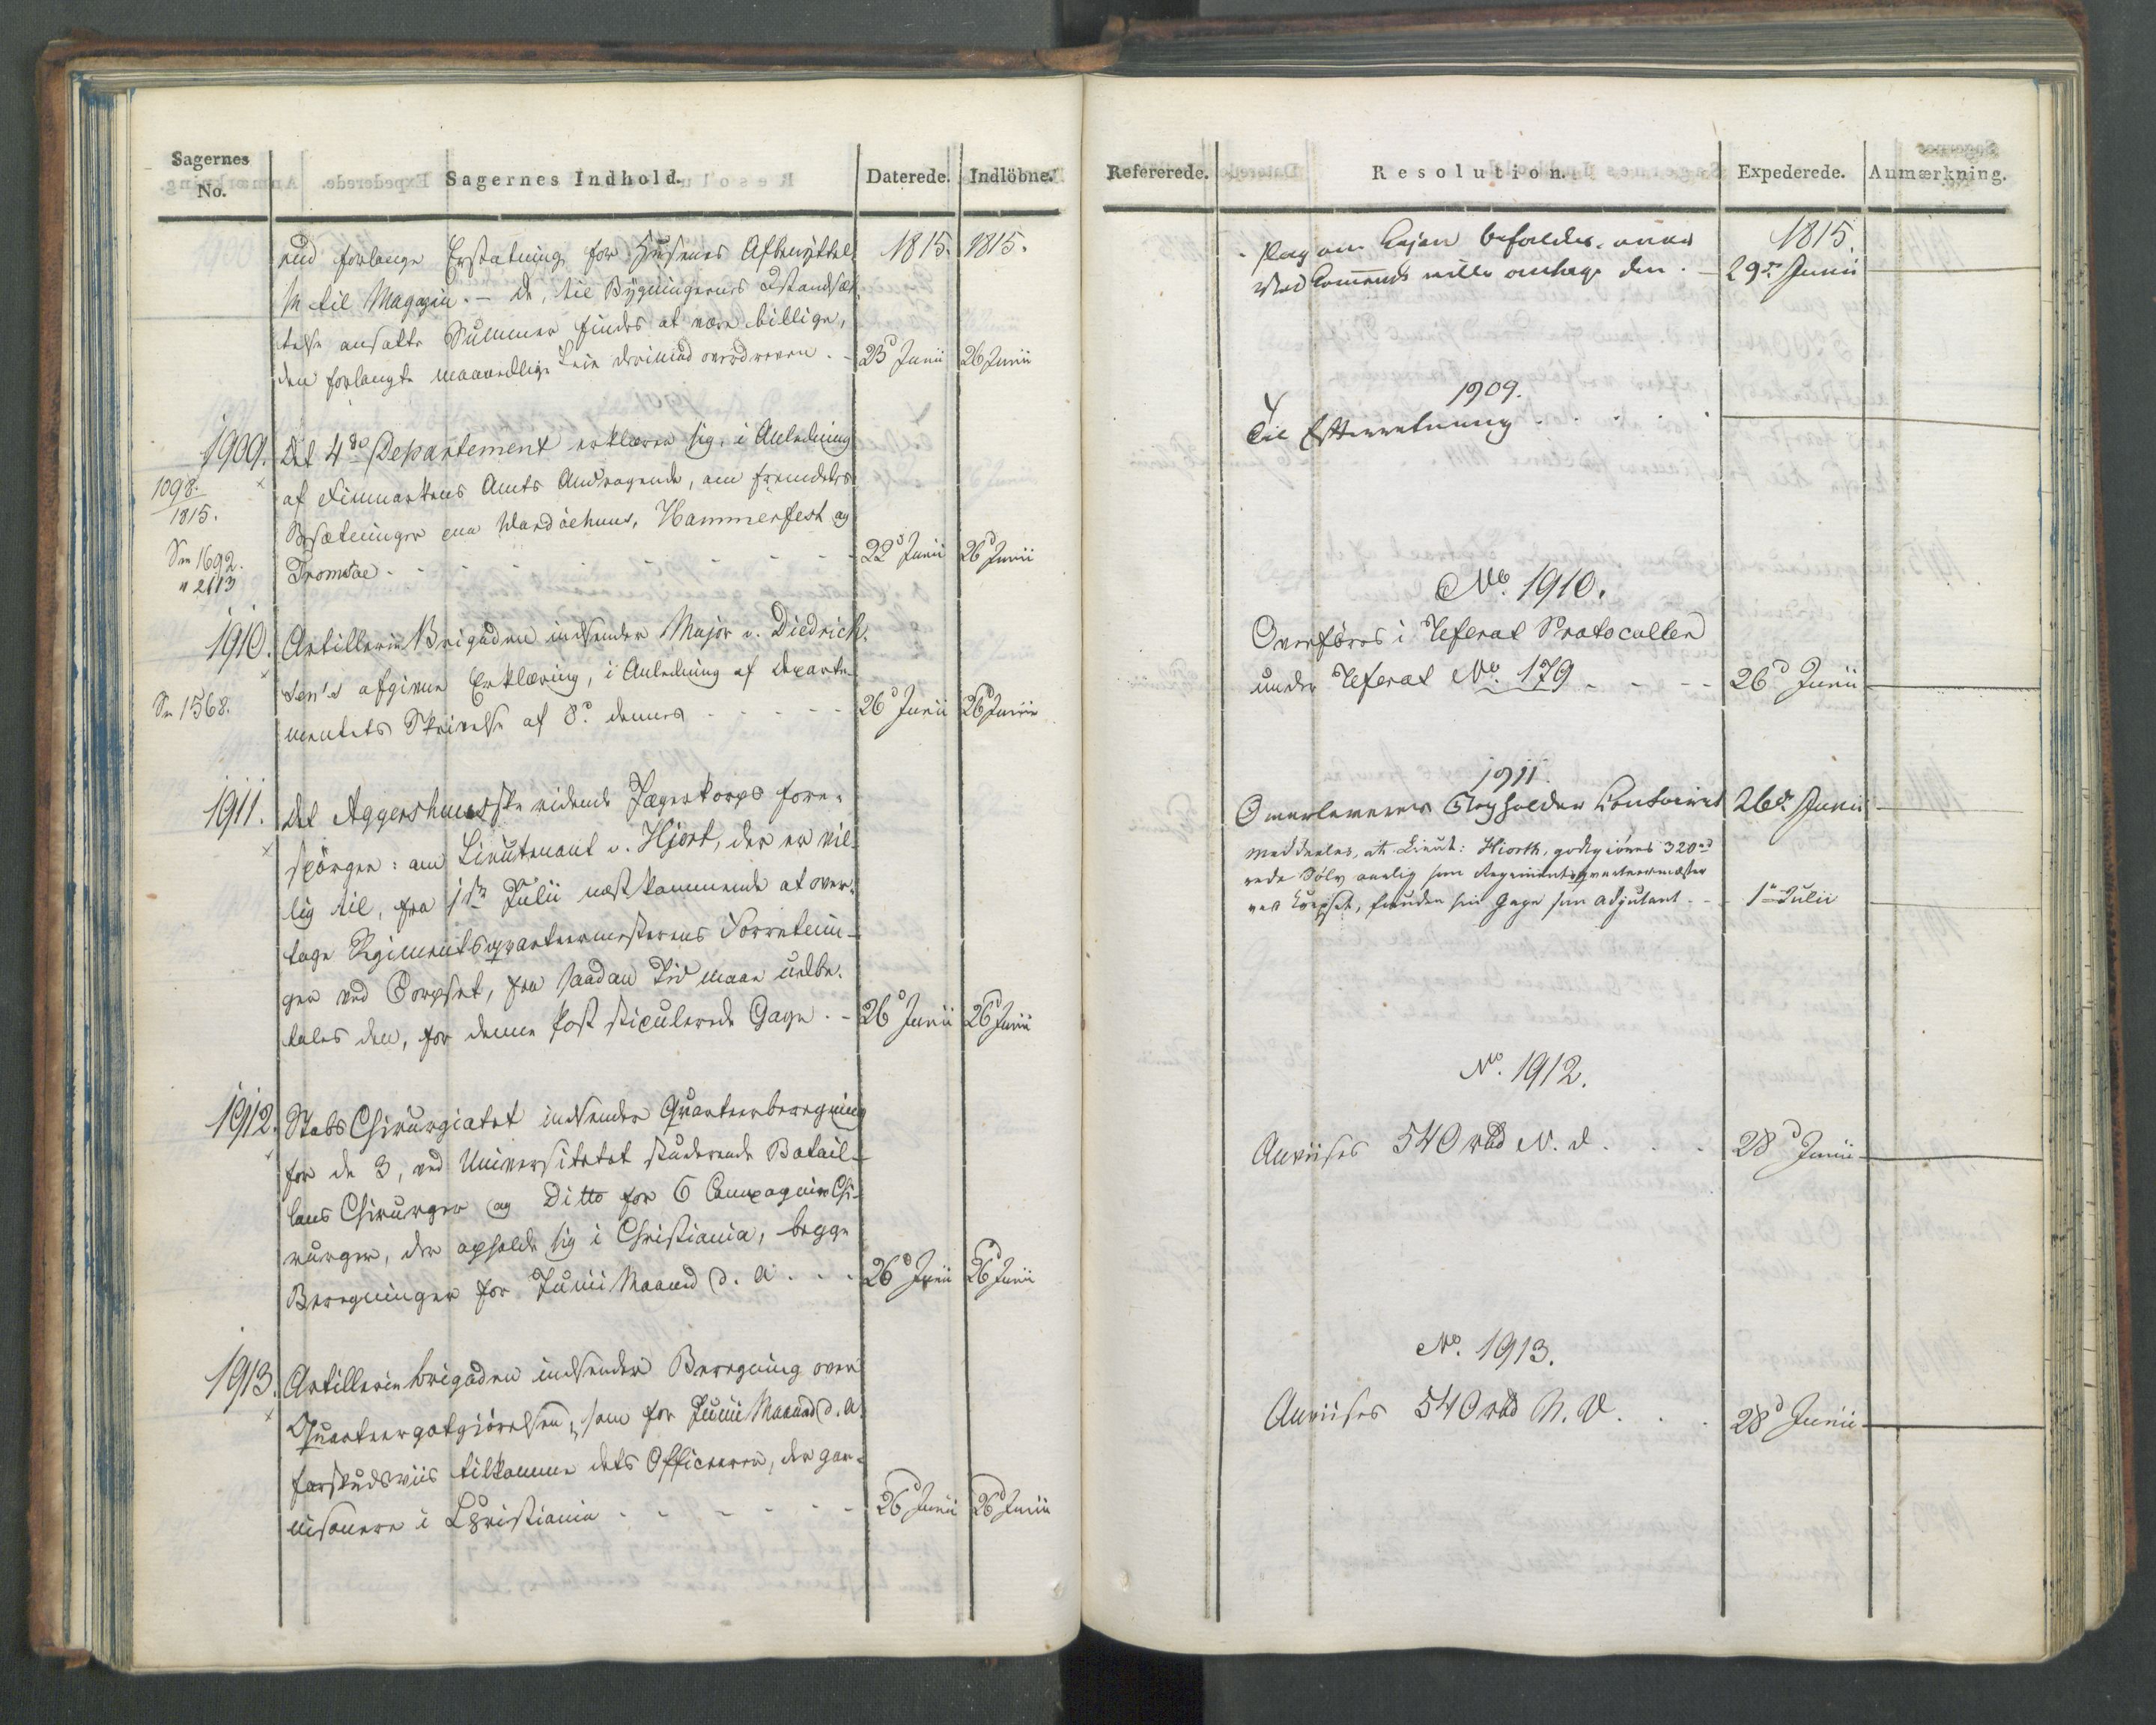 Sagernes
No.
Sagernes Indhold.
Daterede.
Indlöbne.
end forlange Erstatning for Husenes Afbenyttel
se til Magazin. – De, til Bygningernes Istandsæt
telse ansatte Summer findes at være billige,
den forlangte maanedlige Leie derimod overdreven. –
1815.
1815.
23d Junii
26 Junii
1909.
1098.
1815.
See 1692.
" 2113
Det 4de Departement erklærer sig, i Anledning
af Finmarkens Amts Andragende, om fremdeles
Besætninger paa Wardöehuus, Hammerfest og
Tromsöe - - -
22d Junii
26d Junii
1910.
Se 1568.
Artillerie Brigaden indsender Major v. Diedrich.
sen's afgivne Erklæring, i Anledning af Departe-
mentets Skrivelse af 8d dennes - - -
26d Junii
26d Junii
1911.
Det Aggershuusske ridende Jægerkorps fore-
spörger: om Lieutenant v. Hjort, der er vil-
lig til, fra 1ste Julii næstkommende at over-
tage Regimentsqvarteermesterens Forretnin-
ger ved Corpset, fra saadan Tid maae udbe-
tales den, for denne Post stipulerede Gage. –
26d Junii
26d Junii
1912.
Stabs Chirurgiatet indsender Qvarteerberegning
for de 3, ved Universitetet studerende Batail-
lons Chirurger og Ditto for 6 Compagnie Chi-
rurger, der opholde sig i Christiania, begge
Beregninger for Junii Maaned d. A. - -
26d Junii
26d Junii
1913.
Artilleriebrigaden indsender Beregning over
Qvarteergodtgiörelsen, som for Junii Maaned d. A.
forskudsviis tilkomme dets Officerer, der gar-
nisonere i Christiania - - -
26d Junii
26d Junii
Refererede.
Resolution.
Expederede.
Anmærkning.
1815.
29de Junii
1909.
Til Efterretning . . .
No. 1910.
Overföres i Referat Protocollen
under Referat No. 179 - - -
26d Junii
1911.
Overleveres Bogholder Contoiret
26de Junii
Meddeeles, at Lieut: Hiorth, godtgiöres 320
rede Sölv aarlig som Regimentsqvarteermester
ved Corpset, foruden sin Gage som Adjutant - -
1ste Julii
No. 1912.
Anviises 540 rbd N. V. . .
28d Junii
No. 1913.
Anviises 540 rbd N. V. . .
28d Junii